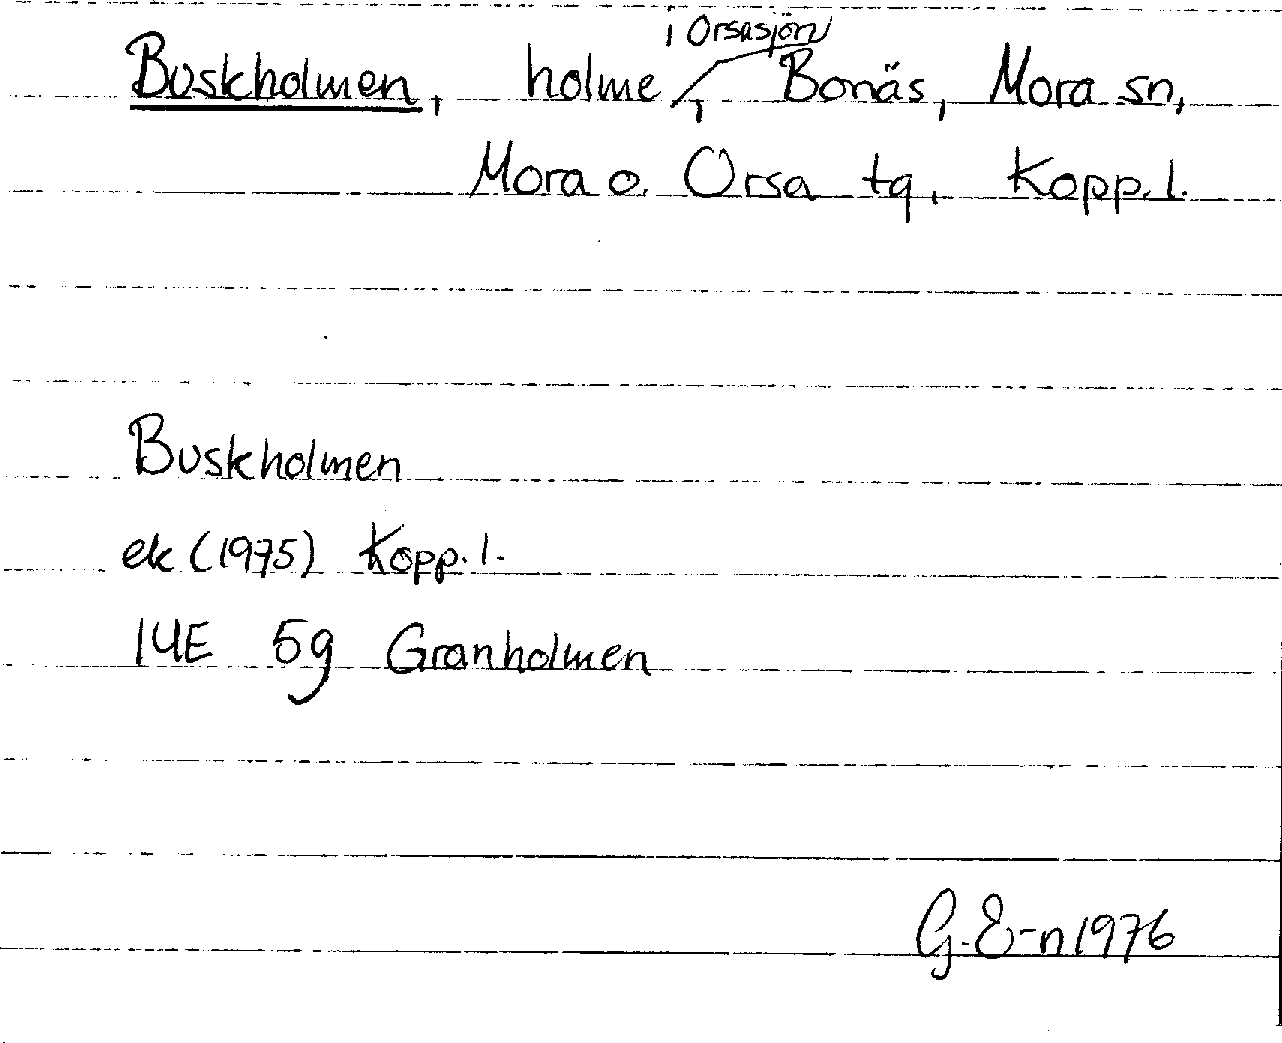 Buskholmen, holme i Orsasjön, Bonäs, Mora sn,
Mora o. Orsa tg, Kopp. l.
Buskholmen
ek (1975) Kopp. l.
14E 5g Granholmen
G. E-n 1976